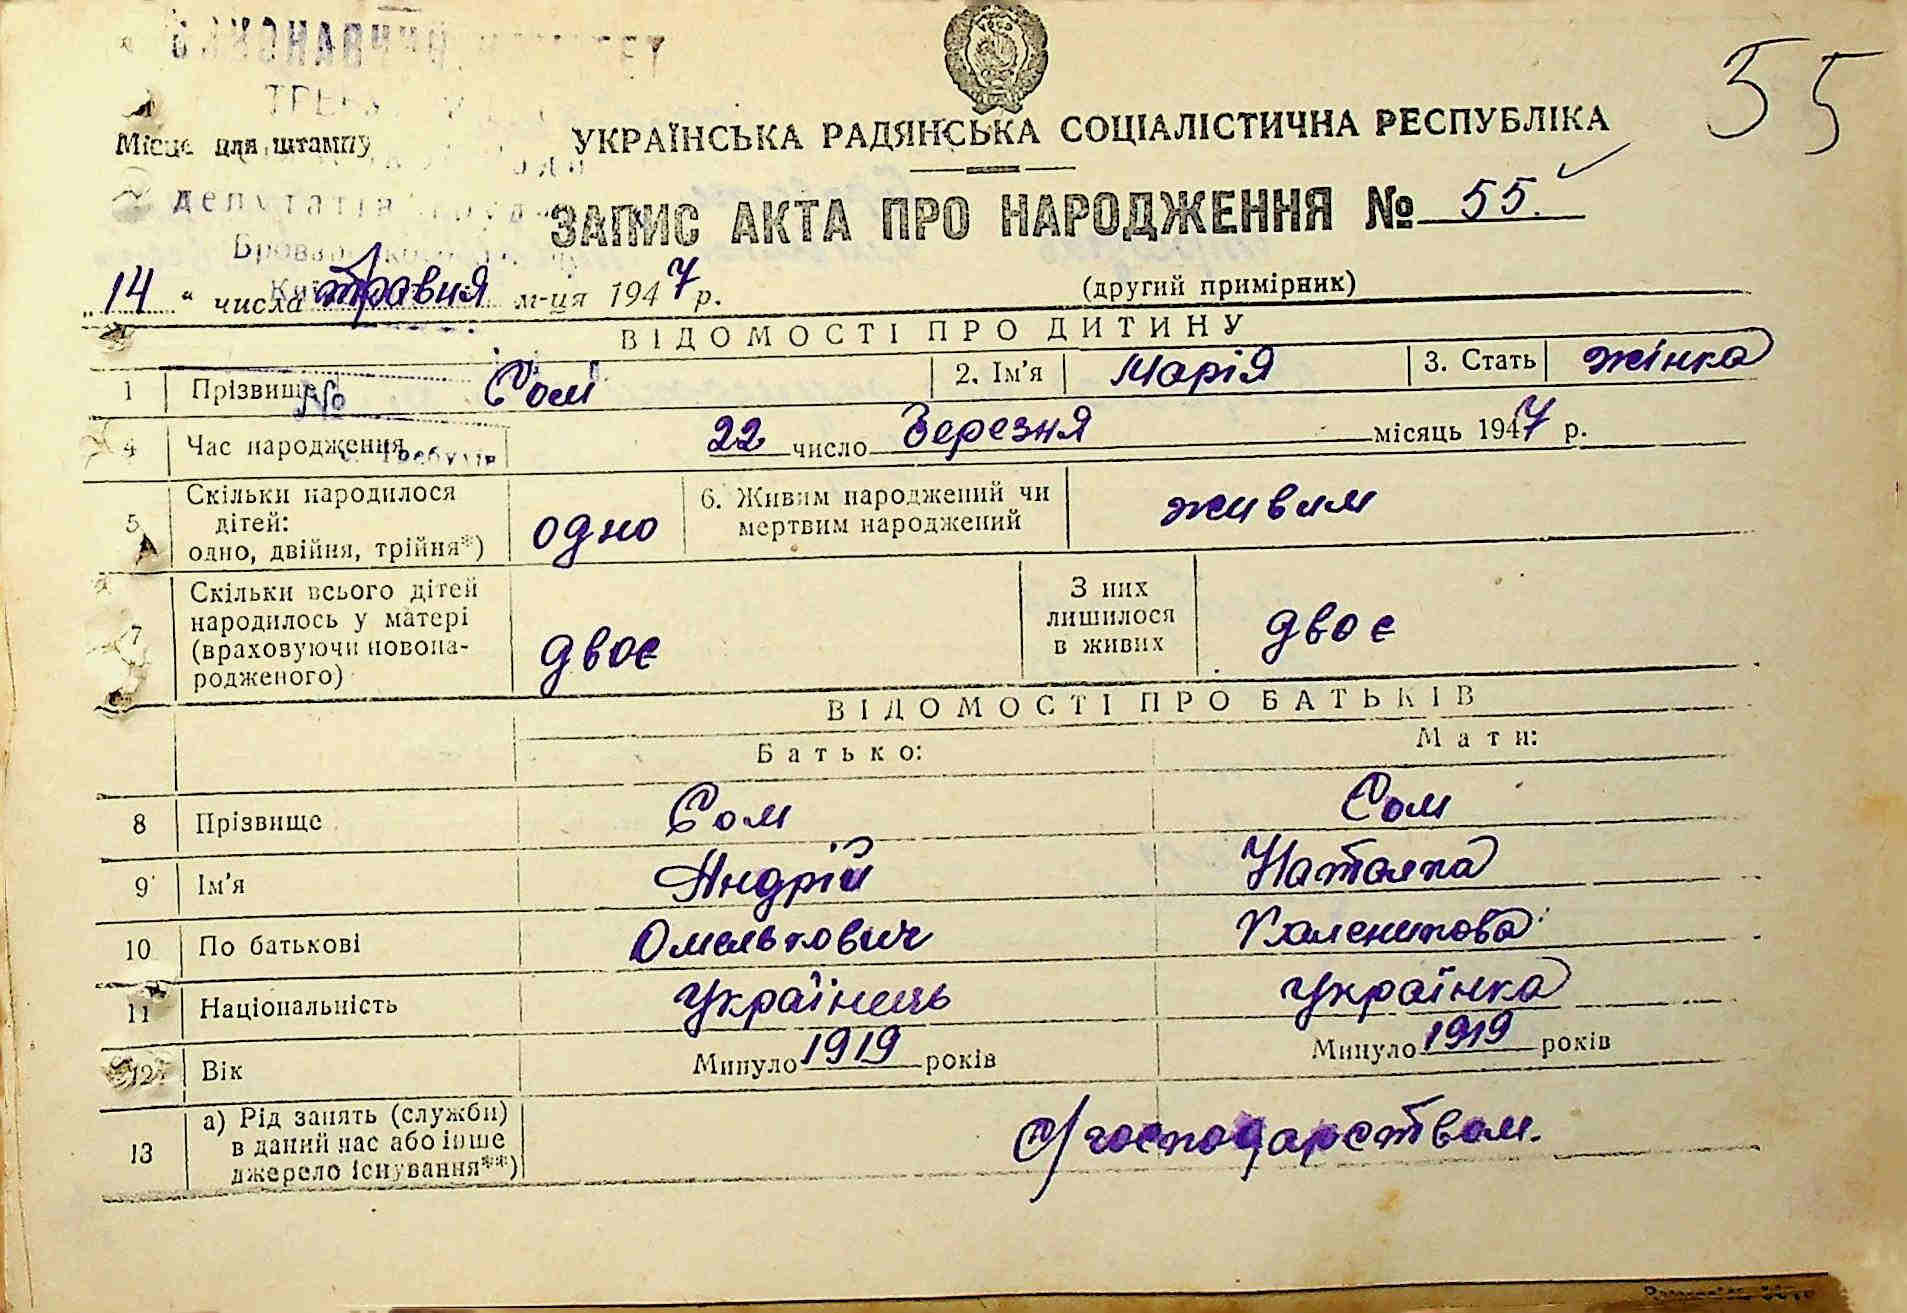 55
Місце для штампу
УКРАЇНСЬКА РАДЯНСЬКА СОЦІАЛІСТИЧНА РЕСПУБЛІКА
депутатів
ЗАПИС АКТА ПРО НАРОДЖЕННЯ № 55.
„14“ числа травня м-ця 1947 р. (другий примірник)
ВІДОМОСТІ ПРО ДИТИНУ
1 Прізвище Сом 2. Ім'я Марія 3. Стать жінка
№
4 Час народження 22 число Березня місяць 1947 р.
5 Скільки народилося
дітей:
одно, двійня, трійня*) одно 6. Живим народжений чи
мертвим народжений живим
7 Скільки всього дітей
народилось у матері
(враховуючи новона-
родженого) двоє З них
лишилося
в живих двоє
ВІДОМОСТІ ПРО БАТЬКІВ
Батько: Мати:
8 Прізвище Сом Сом
9 Ім'я Андрій Наталка
10 По батькові Омелькович Каленикова
11 Національність Українець Українка
12 Вік Минуло 1919 років Минуло 1919 років
13 а) Рід занять (служби)
в даний час або інше
джерело існування**) с/господарством.